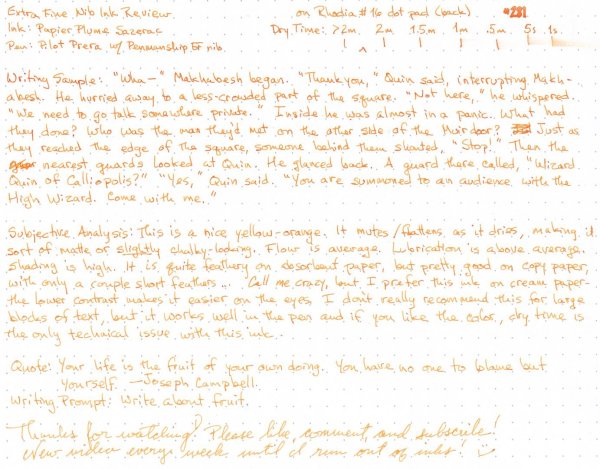 Extra Fine Nib Ink Review on Rhodia #16 dot pad (back) #281
Ink: Papier Plume Sazerac Dry Time: >2m 2m 1.5m 1m .5m 5s 1s
Pen: Pilot Prera w/ Penmanship EF nib.
Writing Sample: "Wha—" Makhubesh began. "Thank you," Quin said, interrupting Makh-
abesh. He hurried away to a less-crowded part of the square. "Not here," he whispered.
"We need to go talk somewhere private." Inside he was almost in a panic. What had
they done? Who was the man they'd met on the other side of the Muirdoor? Just as
they reached the edge of the square, someone behind them shouted, "Stop!" Then the
nearest guards looked at Quin. He glanced back. A guard there called, "Wizard
Quin of Calliopolis?" "Yes," Quin said. "You are summoned to an audience with the
High Wizard. Come with me."
Subjective Analysis: This is a nice yellow-orange. It mutes/flattens as it dries, making it
sort of matte or slightly chalky-looking. Flow is average. Lubrication is above average.
Shading is high. It is quite feathery on absorbent paper, but pretty good on copy paper,
with only a couple short feathers... Call me crazy, but I prefer this ink on cream paper-
the lower contrast makes it easier on the eyes. I don't really recommend this for large
blocks of text, but it works well in the pen and if you like the color, dry time is
the only technical issue with this ink.
Quote: Your life is the fruit of your own doing. You have no one to blame but
yourself. —Joseph Campbell.
Writing Prompt: Write about fruit.
Thanks for watching! Please like, comment, and subscribe!
New video every week until I run out of inks! :)